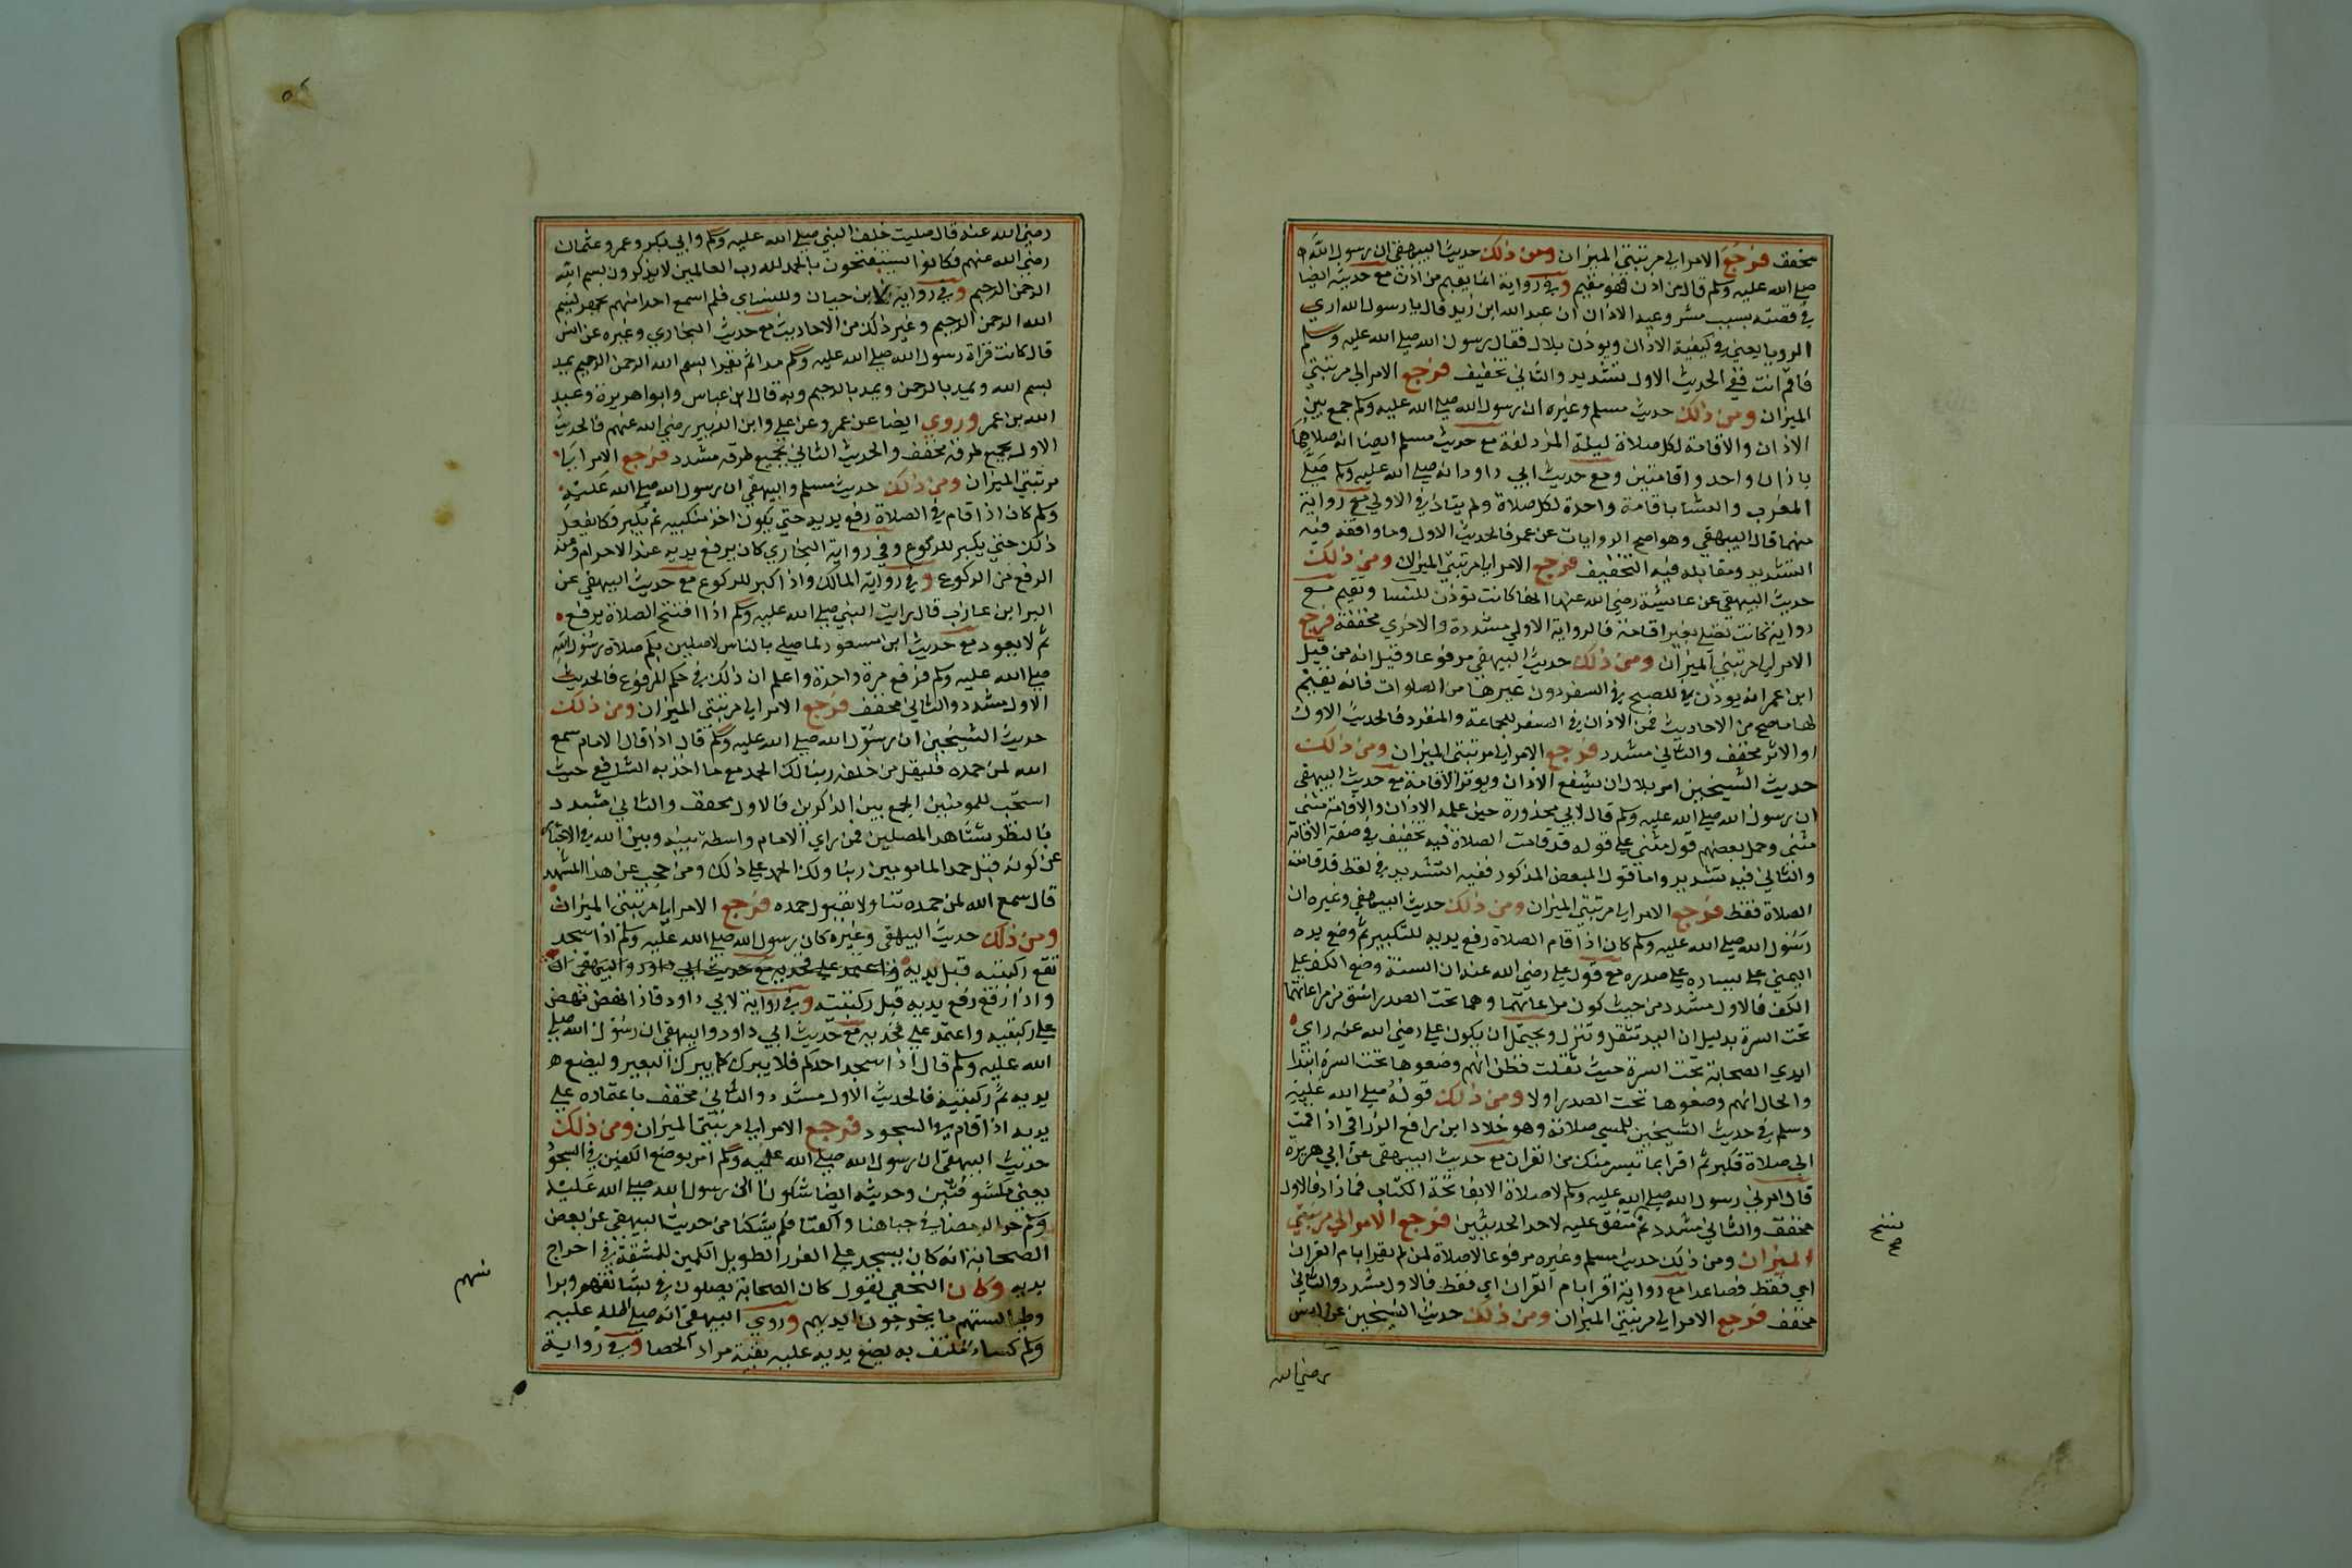 مخفف فرجع الامر الي مرتبتي الميزان ومن ذلك حديث البيهقي ان رسول الله
صلي الله عليه وسلم قال من اذن فهو مقيم وفي رواية انما يقيم من اذن مع حديثه ايضا
في قصته بسبب مشروعية الاذان ان عبد الله ابن زيد قال يا رسول الله اري
الرويا يعني في كيفية الاذان ويوذن بلال فقال رسول الله صلي الله عليه وسلم
فاقم انت ففي الحديث الاول تشديد والثاني تخفيف فرجع الامر الي مرتبتي
الميزان ومن ذلك حديث مسلم وغيره ان رسول الله صلي الله عليه وسلم جمع بين
الاذان والاقامة لكل صلاة ليلة المزدلفة مع حديث مسلم ايضا انه صلاهما
باذان واحد واقامتين ومع حديث ابي داود انه صلي الله عليه وسلم صلي
المغرب والعشا باقامة واحدة لكل صلاة ولم يناد في الاولي مع رواية
منهما قال البيهقي وهو اصح الروايات عن عمر فالحديث الاول وما وافقه فيه
التشديد ومقابله فيه التخفيف فرجع الامر الي مرتبتي الميزان ومن ذلك
حديث البيهقي عن عايشة رضي الله عنها انها كانت توذن للنسا وتقيم مع
رواية كانت تصلي بغير اقامة فالرواية الاولي مشددة والاخري مخففة فرجع
الامر الي مرتبتي الميزان ومن ذلك حديث البيهقي مرفوعا وقيل انه من قبل
ابن عمر انه يوذن للصبح في السفر دون غيرها من الصلوات فانه يقيم
لها ما صح من الاحاديث من الاذان في السفر للجماعة والمنفرد فالحديث الاول
او الاثر مخفف والثاني مشدد فرجع الامر الي مرتبتي الميزان ومن ذلك
حديث الشيخين امر بلال ان يشفع الاذان ويوتر الاقامة مع حديث البيهقي
ان رسول الله صلي الله عليه وسلم قال لابي محذورة حين علمه الاذان والاقامة مثني
مثني وحمل بعضهم قول مثني علي قوله قد قامت الصلاة فيه تخفيف في صفة الاقامة
والثاني فيه تشديد واما قول البعض المذكور ففيه التشديد في لفظ قد قامت
الصلاة فقط فرجع الامر الي مرتبتي الميزان ومن ذلك حديث البيهقي وغيره ان
رسول الله صلي الله عليه وسلم كان اذا قام الصلاة رفع يديه للتكبير ثم وضع يده
اليمني علي يساره علي صدره مع قول علي رضي الله عنه ان السنة وضع الكف علي
الكف فالاول مشدد من حيث كون مراعاتهما وهما تحت الصدر اشق من مراعاتهما
تحت السرة بدليل ان اليد تثقل وتنزل ويحتمل ان يكون علي رضي الله عنه راي
ايدي الصحابة تحت السرة حيث ثقلت فظن انهم وضعوها تحت السرة ابتدا
والحال انهم وضعوها تحت الصدر اولا ومن ذلك قوله صلي الله عليه
وسلم في حديث الشيخين للمسي صلاته وهو خلاد ابن رافع الزرقي اذا قمت
الي صلاة فكبر ثم اقرا بما تيسر معك من القران مع حديث البيهقي عن ابي هريرة
قال امرني رسول الله صلي الله عليه وسلم لا صلاة الا بفاتحة الكتاب فما زاد فالاول
مخفف والثاني مشدد ثم متفق عليه لاحد الحديثين فرجع الامر الي مرتبتي
الميزان ومن ذلك حديث مسلم وغيره مرفوعا لا صلاة لمن لم يقرا بام القران
اي فقط فصاعدا مع رواية اقرا بام القران اي فقط فالاول مشدد والثاني
مخفف فرجع الامر الي مرتبتي الميزان ومن ذلك حديث الشيخين عن انس
رضي الله
رضي الله عنه قال صليت خلف النبي صلي الله عليه وسلم وابي بكر وعمر وعثمان
رضي الله عنهم فكانوا يستفتحون بالحمد لله رب العالمين لا يذكرون بسم الله
الرحمن الرحيم وفي رواية لابن حبان وللنساي فلم اسمع احدا منهم يجهر ببسم
الله الرحمن الرحيم وغير ذلك من الاحاديث مع حديث البخاري وغيره عن انس
قال كانت قراة رسول الله صلي الله عليه وسلم مدا ثم يقرا بسم الله الرحمن الرحيم يمد
بسم الله ويمد بالرحمن ويمد بالرحيم وبه قال ابن عباس وابوا هريرة وعبد
الله بن عمر وروي ايضا عن عمر وعن علي وابن الزبير رضي الله عنهم فالحديث
الاول بجميع طرقه مخفف والحديث الثاني بجميع طرقه مشدد فرجع الامر الي
مرتبتي الميزان ومن ذلك حديث مسلم والبيهقي ان رسول الله صلي الله عليه
وسلم كان اذا قام في الصلاة رفع يديه حتي يكون اخذ منكبيه ثم يكبر وكان يفعل
ذلك حتي يكبر للركوع وفي رواية البخاري كان يرفع يديه عند الاحرام وعند
الرفع من الركوع وفي رواية المالك واذا كبر للركوع مع حديث البيهقي عن
البرا ابن عازب قال رايت النبي صلي الله عليه وسلم اذا افتتح الصلاة يرفع
ثم لا يعود مع حديث ابن مسعود لما صلي بالناس لاصلين بكم صلاة رسول الله
صلي الله عليه وسلم فرفع مرة واحدة واعلم ان ذلك في حكم المرفوع فالحديث
الاول مشدد والثاني مخفف فرجع الامر الي مرتبتي الميزان ومن ذلك
حديث الشيخين ان رسول الله صلي الله عليه وسلم قال اذا قال الامام سمع
الله لمن حمده فليقل من خلفه ربنا لك الحمد مع ما اخذ به الشافعي حيث
استحب للمومنين الجمع بين الذاكرين فالاول مخفف والثاني مشدد
فالنظر بشاهد المصلين فمن راي الامام واسطة بينه وبين الله في الاخبار
عن كونه قبل حمد المامومين ربنا ولك الحمد علي ذلك ومن حجب عن هذا المشهد
قال سمع الله لمن حمده تفاولا بقبول حمده فرجع الامر الي مرتبتي الميزان
ومن ذلك حديث البيهقي وغيره كان رسول الله صلي الله عليه وسلم اذا سجد
تقع ركبتيه قبل يديه واعتمد علي فخديه مع حديث ابي داود والبيهقي ان
واذا رفع رفع يديه قبل ركبتيه وفي رواية لابي داود فاذا نهض نهض
علي ركبتيه واعتمد علي فخديه مع حديث ابي داود والبيهقي ان رسول الله صلي
الله عليه وسلم قال اذا سجد احدكم فلا يبرك كما يبرك البعير وليضع
يديه ثم ركبتيه فالحديث الاول مشدد والثاني مخفف باعتماده علي
يديه اذا قام من السجود فرجع الامر الي مرتبتي الميزان ومن ذلك
حديث البيهقي ان رسول الله صلي الله عليه وسلم امر بوضع الكفين في السجود
يعني مكشوفتين وحديثه ايضا شكونا الي رسول الله صلي الله عليه
وسلم حر الرمضا في جباهنا واكفنا فلم يشكنا من حديث البيهقي عن بعض
الصحابة انه كان يسجد علي الفرر الطويل الكمين للمشقة في اخراج
يديه وكان النخعي يقول كان الصحابة يصلون في
ما يخرجون ايديهم وروي البيهقي انه صلي الله عليه
وسلم كساء ملتف به يضع يديه عليه يقيه برد الحصا وفي رواية